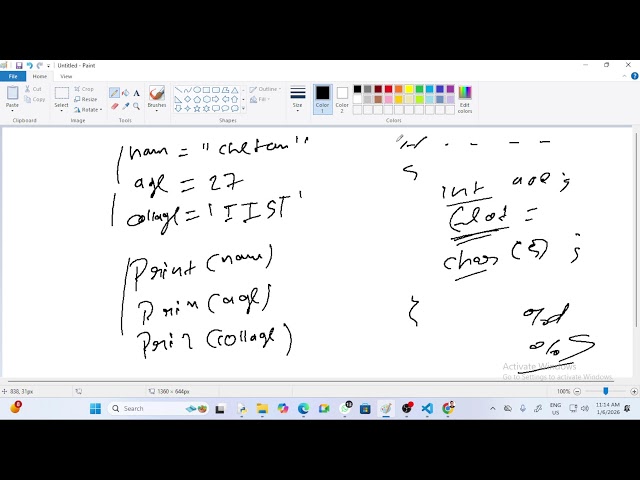 Untitled - Paint
File Home View
Paste Cut Copy Select Crop Resize Rotate Brushes Outline Fill Size Color 1 Color 2 Edit colors
Clipboard Image Tools Shapes Colors
nam = "chetan"
age = 27
collage = 'IIST'
Print (nam)
Prin (age)
Prin (collage)
int age ;
float =
char (5) ;
%d
%S
Activate Windows
Go to Settings to activate Windows.
838, 31px 1360 × 644px 100%
Search ENG US 11:14 AM 1/6/2026